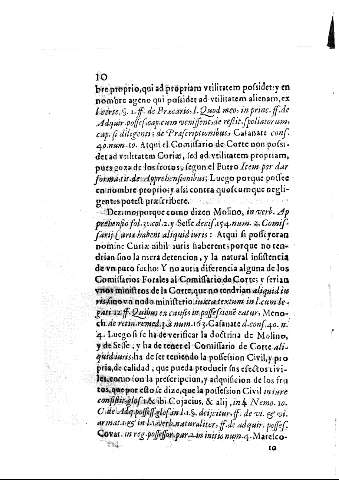 10
bre proprio, qui ad propriam vtilitatem possidet: y en
nombre ageno qui possidet ad vtilitatem alienam, ex
l. certe. §. 1. ff. de Precario. l. Quod meo: in princ. ff. de
Adquir. posses. cap. cum venissent, de restit. spoliatorum,
cap. si diligenti de Præscriptionibus; Casanate cons.
40. num. 10. Atqui el Comissario de Corte non possi-
det ad vtilitatem Curiæ, sed ad vtilitatem propriam,
pues goza de los frutos, segun el Fuero Item por dar
forma tit. de Apprehensionibus; Luego porque possee
en nombre proprio, y assi contra quoscumque negli-
gentes potest præscribere.
Dezimo, porque como dizen Molino, in verb. Ap
prehensio fol. col. 2. y Sesse decis. 154. num. 2. Comis-
sarij Curiæ habent aliquid iuris: Atqui si posseyeran
nomine Curiæ nihil iuris haberent; porque no ten-
drian sino la mera detencion, y la natural insistencia
de vn puro fecho: Y no auria diferencia alguna de los
Comissarios Forales al Comissario de Corte; y serian
vnos ministros de la Corte, que no tendrian aliquid in
vn nodo ministerio, iuxta textum in l. cum de-
12. ff. Quibus ex causis in possessione eatur. Meno-
ch. de retin. remed. 3. num. 163. Casanate d. cons. 40. n.
4. Luego si se ha de verificar la doctrina de Molino,
y de Sesse, y ha de tener el Comissario de Corte ali-
quid iuris, ha de ser teniendo la possession Civil, y pro
pria, de calidad, que pueda producir sus efectos civi-
les, como son la prescripcion, y adquisicion de los fru
tos, que por esto se dize, que la possession Civil in iure
consistit glos. & ibi Cojacius, & alij, in §. Nemo. 10.
C. de Adq. posses. glos. in l. 1. §. deijcitur, ff. de vi. & vi.
armat. vers. in verb. naturaliter, ff. de adquir. posses.
Covar. in reg. possessor, par. 2. in initio num. 4. Marelco-
10